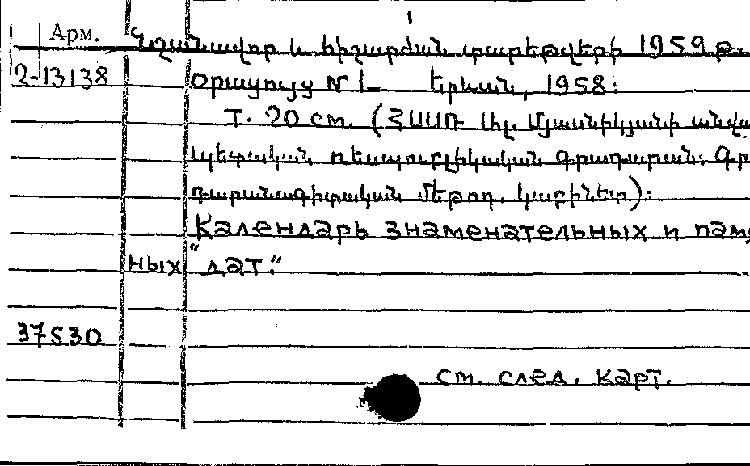 Арм.
Նշանավոր և հիշարժան տարեթվերի 1959 թ.
2-13138
օրացույց N 1— Երևան, 1958։
Т. 20 см. (ՀՍՍՌ Ալ. Մյասնիկյանի անվա
պետական ռեսպուբլիկական գրադարան։ Գր
դարանագիտական մեթոդ. կաբինետ)։
Календарь знаменательных и памя
ных дат."
37530
см. след. карт.